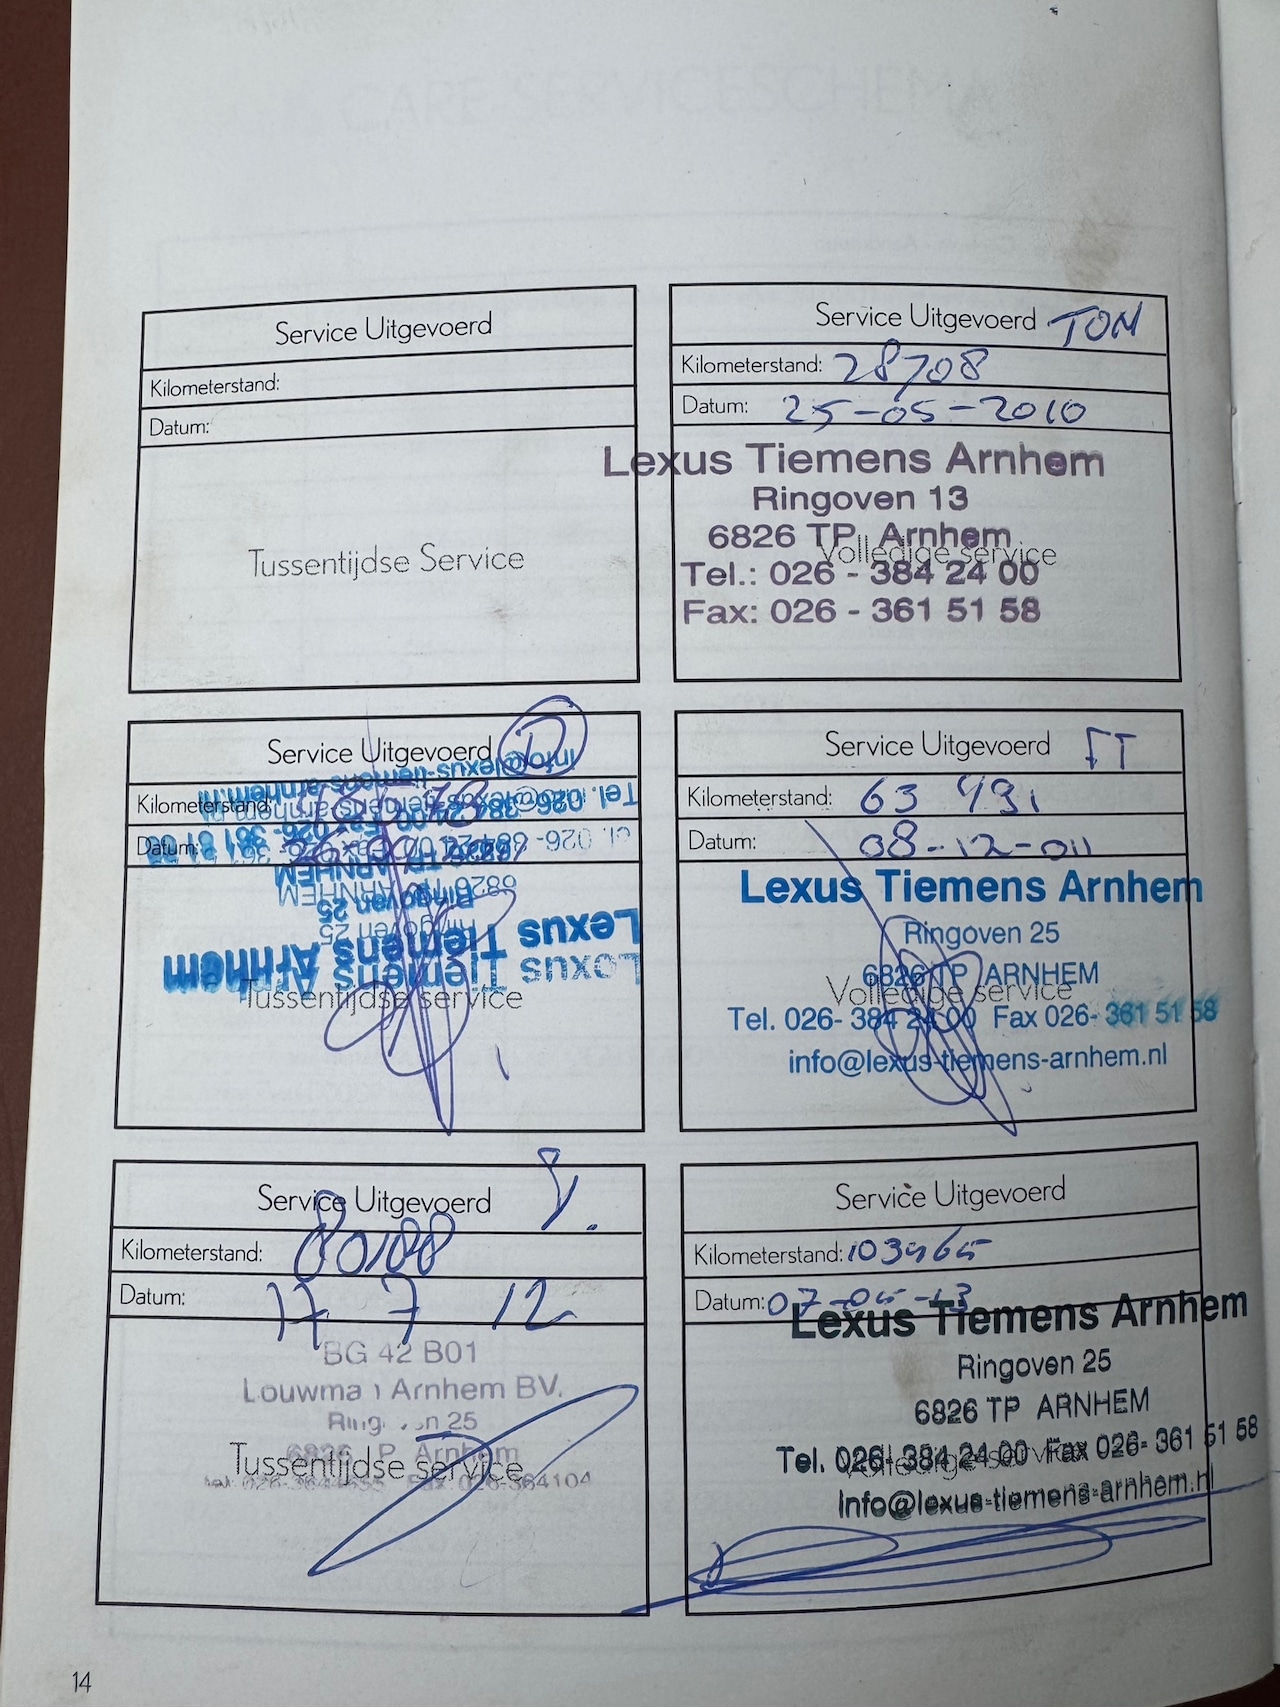 Service Uitgevoerd
Kilometerstand:
Datum:
Tussentijdse Service
Service Uitgevoerd TOM
Kilometerstand: 28708
Datum: 25-05-2010
Lexus Tiemens Arnhem
Ringoven 13
6826 TP Arnhem
Volledige service
Tel.: 026 - 384 24 00
Fax: 026 - 361 51 58
Service Uitgevoerd D
Kilometerstand:
Datum:
info@lexus-tiemens-arnhem.nl
Tel. 026- 384 24 00 Fax 026- 361 51 58
6826 TP ARNHEM
Ringoven 25
Lexus Tiemens Arnhem
Tussentijdse service
Service Uitgevoerd FT
Kilometerstand: 63 491
Datum: 08-12-011
Lexus Tiemens Arnhem
Ringoven 25
6826 TP ARNHEM
Volledige service
Tel. 026- 384 24 00 Fax 026- 361 51 58
info@lexus-tiemens-arnhem.nl
Service Uitgevoerd
Kilometerstand: 80188
Datum: 17 7 12
BG 42 B01
Louwman Arnhem BV.
Ringoven 25
6826 P Arnhem
Tussentijdse service
Service Uitgevoerd
Kilometerstand: 103465
Datum: 07-05-13
Lexus Tiemens Arnhem
Ringoven 25
6826 TP ARNHEM
Tel. 026- 384 24 00 Fax 026- 361 51 58
Volledige service
info@lexus-tiemens-arnhem.nl
14